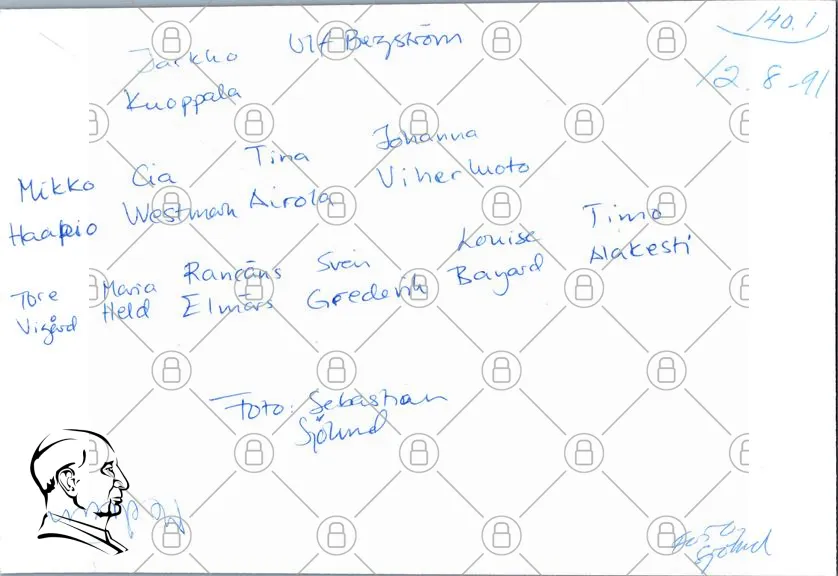 140.1
12.8-91
Jarkko Ulf Bergström
Kuoppala
Mikko Cia Tina Johanna
Haapio Westman Airola Viherluoto
Tore Maria Rancāns Svein Louise Timo
Vigård Held Elmārs Grederik Bayard Alakesti
Foto: Sebastian
Sjölund
Foto
Sjölund